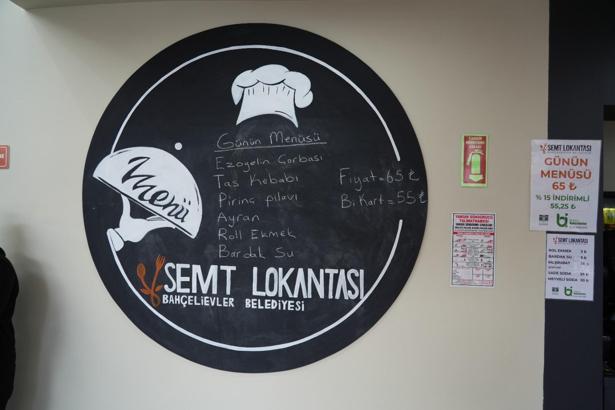 Günün Menüsü
Ezogelin Çorbası
Tas Kebabı
Pirinç pilavı
Ayran
Roll Ekmek
Bardak Su
Fiyat = 65 ₺
Bi Kart = 55 ₺
Menü
SEMT LOKANTASI
BAHÇELİEVLER BELEDİYESİ
SEMT LOKANTASI
GÜNÜN
MENÜSÜ
65 ₺
% 15 İNDİRİMLİ
55,25 ₺
SEMT LOKANTASI
ROL EKMEK
BARDAK SU
SADE SODA
MEYVELİ SODA